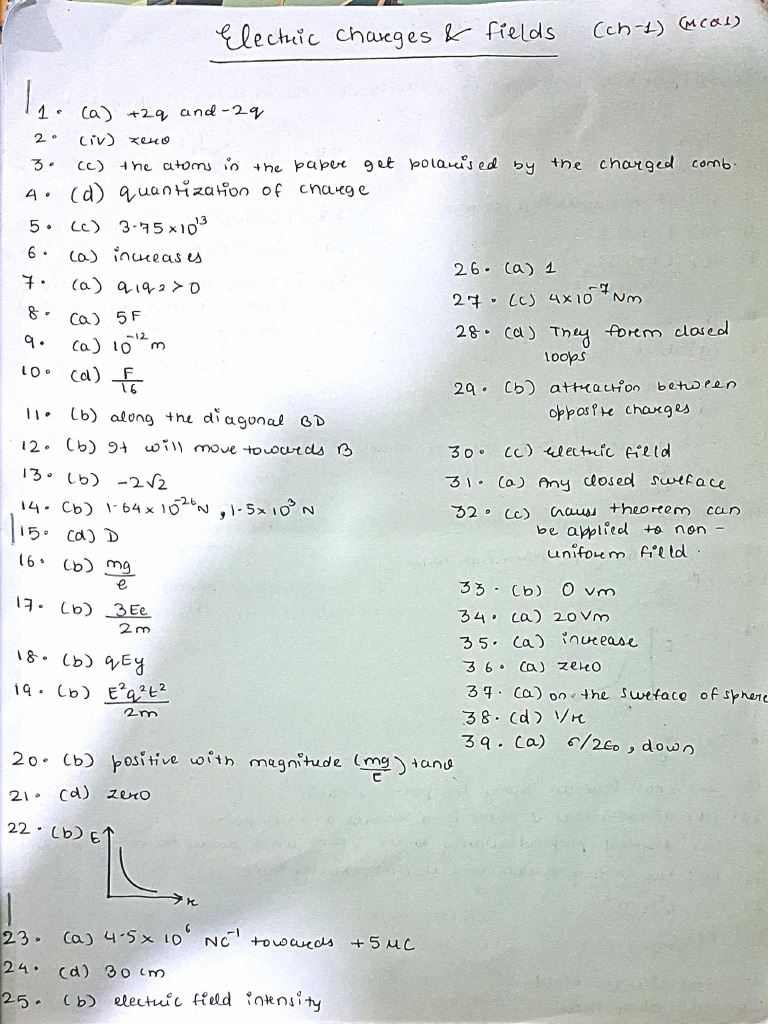 Electric charges & fields (ch-1) (MCQ1)
1. (a) +2q and -2q
2. (iv) zero
3. (c) the atoms in the paper get polarised by the charged comb.
4. (d) quantization of charge
5. (c) 3.75×10¹³
6. (a) increases
7. (a) q1q2>0
8. (a) 5F
9. (a) 10⁻¹² m
10. (d) F/16
11. (b) along the diagonal BD
12. (b) It will move towards B
13. (b) -2√2
14. (b) 1.64×10⁻²⁶ N, 1.5×10³ N
15. (d) D
16. (b) mg/e
17. (b) 3Ee/2m
18. (b) qEy
19. (b) E²q²t²/2m
20. (b) positive with magnitude (mg/E) tanθ
21. (d) zero
22. (b) E
r
23. (a) 4.5×10⁶ NC⁻¹ towards +5 μC
24. (d) 30 cm
25. (b) electric field intensity
26. (a) 1
27. (c) 4×10⁻⁷ Nm
28. (d) They form closed
loops
29. (b) attraction between
opposite charges
30. (c) electric field
31. (a) Any closed surface
32. (c) Gauss theorem can
be applied to non-
uniform field.
33. (b) 0 Vm
34. (a) 20 Vm
35. (a) increase
36. (a) zero
37. (a) on the surface of sphere
38. (d) 1/r
39. (a) σ/2ε0, down